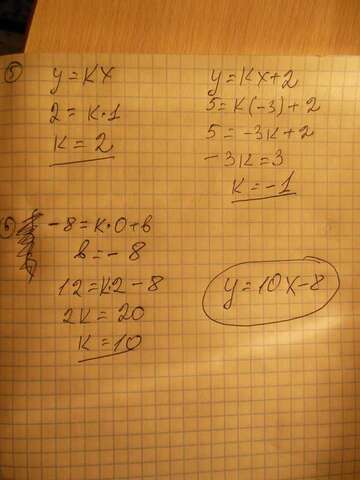 5) y=kx
2=k·1
k=2
y=kx+2
5=k(-3)+2
5=-3k+2
-3k=3
k=-1
6) -8=k·0+b
b=-8
12=k·2-8
2k=20
k=10
y=10x-8